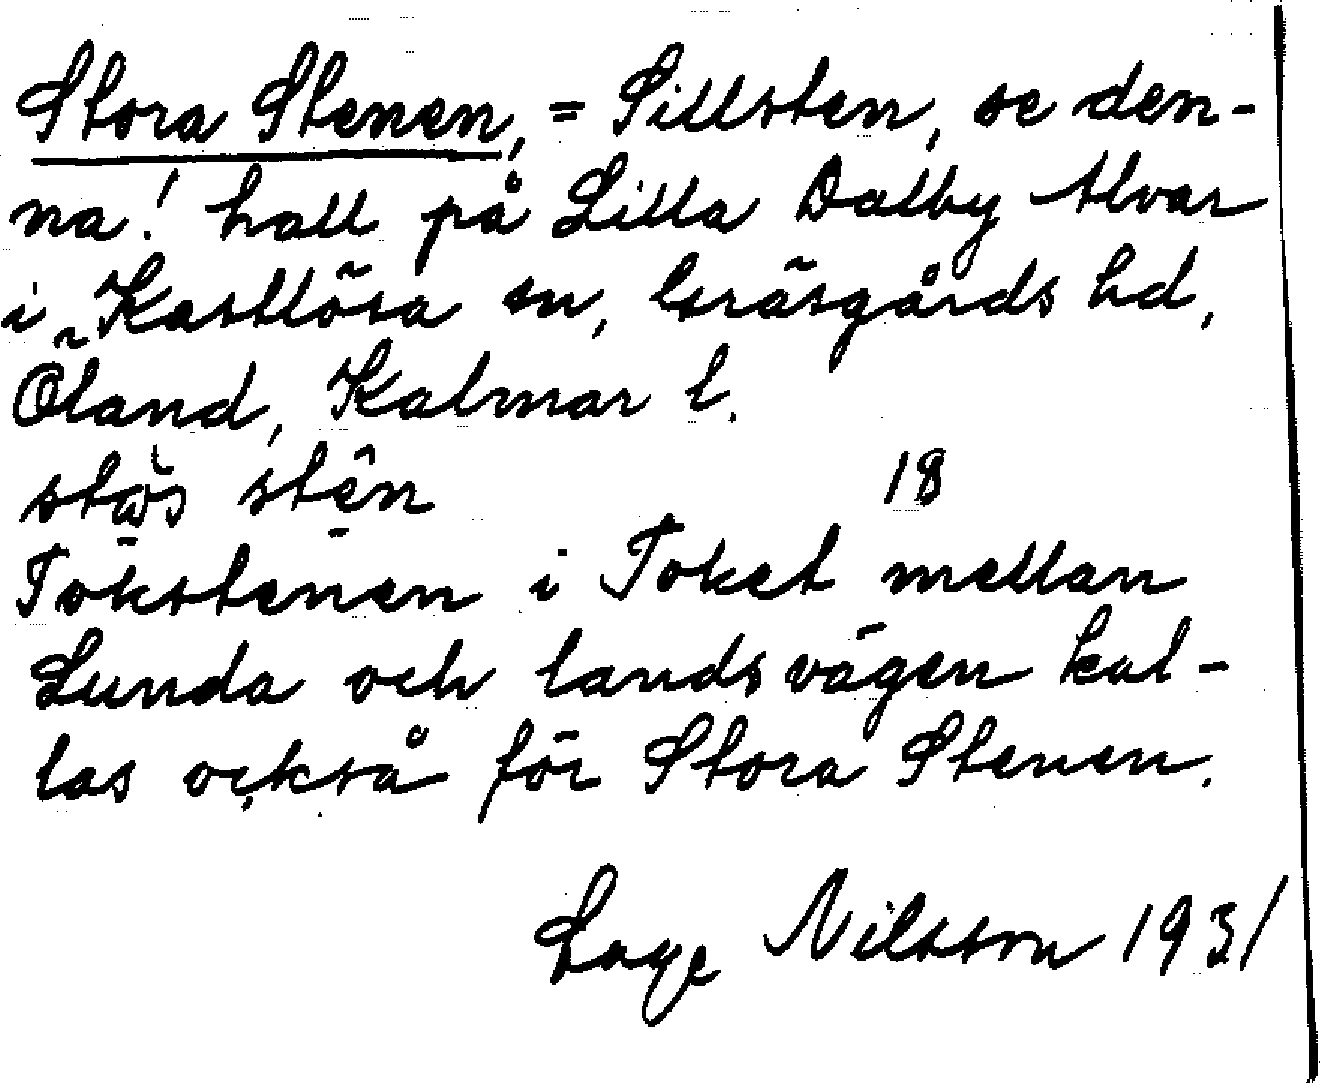 Stora Stenen, = Sillsten, se den-
na! hall på Lilla Dalby Alvar
i Kastlösa sn, Gräsgårds hd,
Öland, Kalmar l.
stên 18
Tökstenen i Töket mellan
Lunda och landsvägen kal-
las också för Stora Stenen.
Lage Nilsson 1931